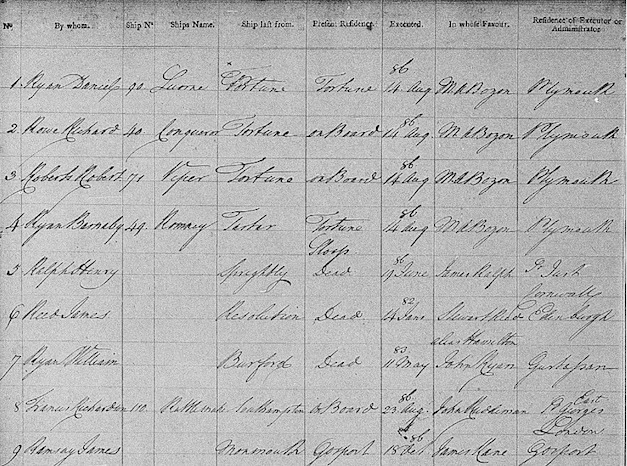 No. By whom. Ship No. Ships Name. Ship last from. Present Residence. Executed. In whose Favour. Residence of Executor or Administrator
86
1 Ryan Daniel 90. Fortune Fortune 14 Aug M A Bozon Plymouth
86
2 Rowe Richard 40. Conqueror Fortune on Board 14 Aug. M A Bozon Plymouth
86
3 Roberts Robert. 71 Viper Fortune on Board 14 Aug M A Bozon Plymouth
86
4 Ryan Barnaby 49. Romney Tartar Fortune 14 Aug M A Bozon Plymouth
Sloop
86
5 Ralph Henry Sprightly Dead 9 June James Ralph St. Just
Cornwall
82
6 Reed James Resolution Dead 14 Jany Stewart Read Edenburgh
alias Hamilton
83
7 Ryan William Burford Dead 11 May John Ryan
86 East
8 Francis Richardson 110. Rattlesnake Southampton on Board 23 Aug. John St Georges
London
86
9 Ramsay James Monmouth Gosport 18 Oct James Kane Gosport